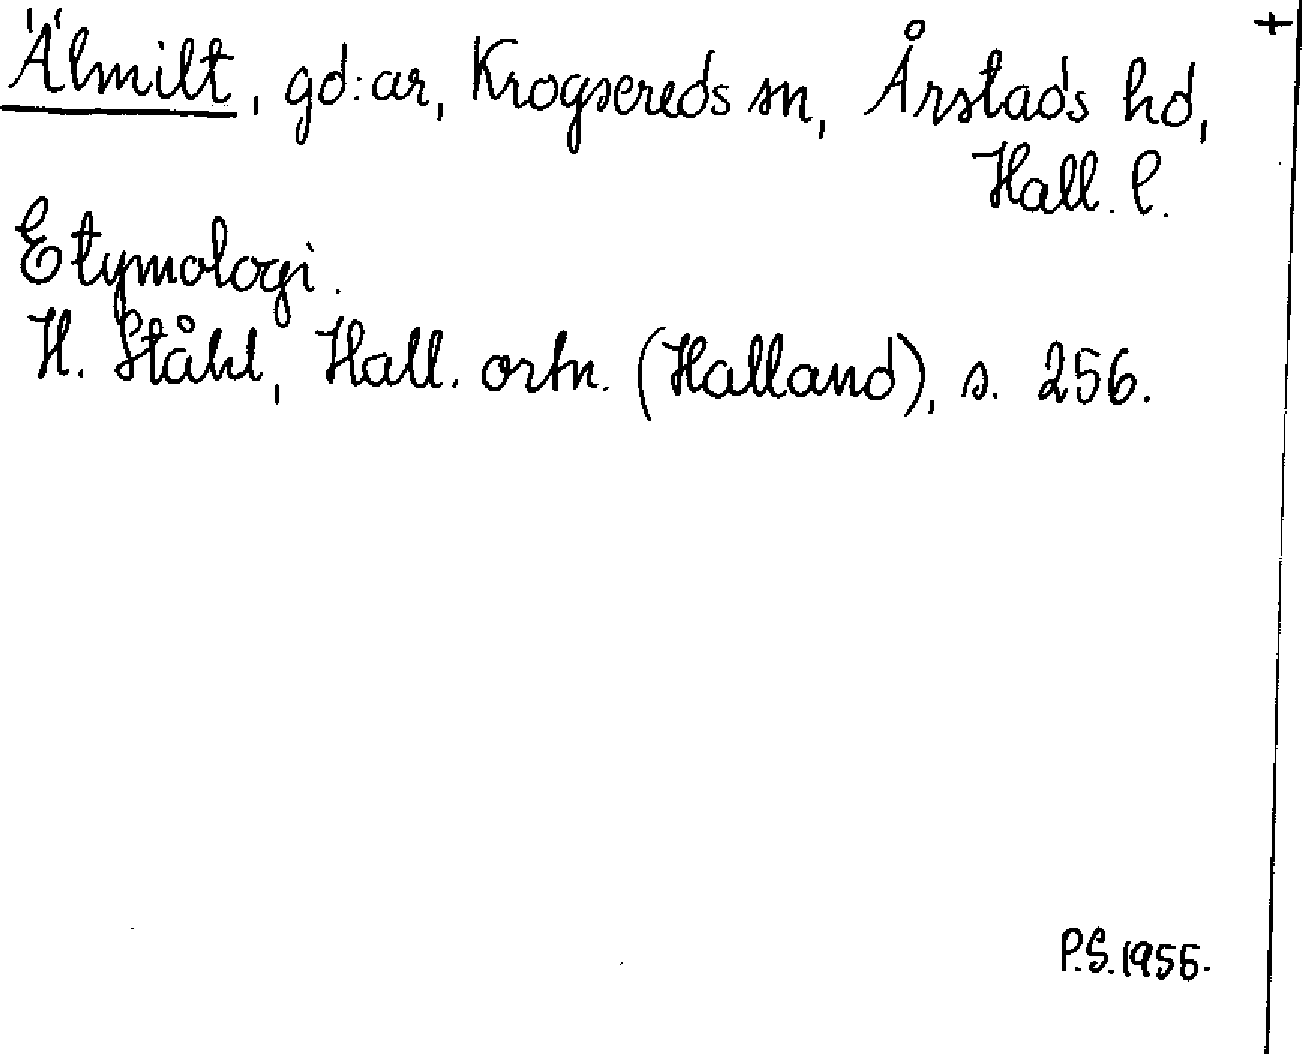 +
Älmilt, gd:ar, Krogsereds sn, Årstads hd,
Hall. l.
Etymologi.
H. Ståhl, Hall. ortn. (Halland), s. 256.
P.S. 1955.